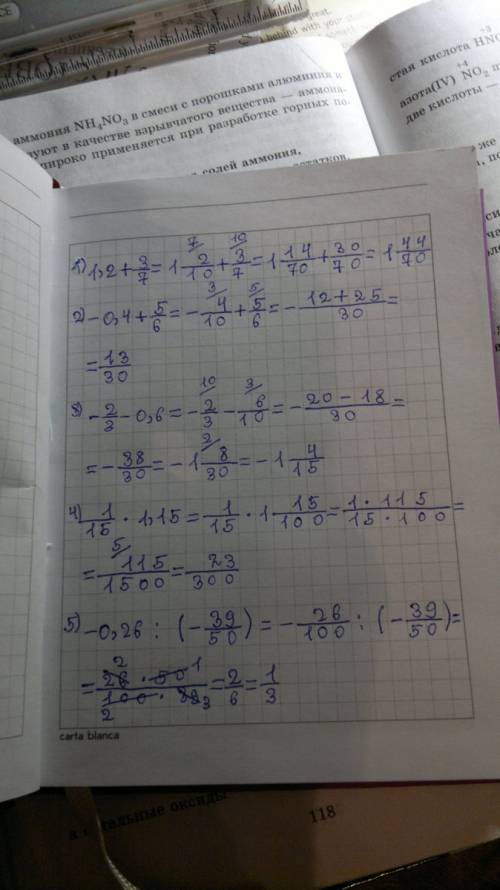 аммония NH₄NO₃ в смеси с порошками алюминия и
в качестве взрывчатого вещества — аммона-
широко применяется при разработке горных по-
солей аммония.
стая кислота HNO
+3
азота(IV) NO₂
+4
две кислоты —
1) 1,2 + 3/7 = 1 2/10 (7/) + 3/7 (10/) = 1 14/70 + 30/70 = 1 44/70
2) -0,4 + 5/6 = - 4/10 (3/) + 5/6 (5/) = - 12 + 25/30 =
= 13/30
3) - 2/3 - 0,6 = - 2/3 (10/) - 6/10 (3/) = - 20 - 18/30 =
= - 38/30 = -1 8/30 (2/) = -1 4/15
4) 1/15 · 1,15 = 1/15 · 1 15/100 = 1 · 115/15 · 100 =
= 115/1500 (5/) = 23/300
5) -0,26 : (- 39/50) = - 26/100 : (- 39/50) =
= 26 (2) · 50 (1)/100 (2) · 39 (3) = 2/6 = 1/3
carta blanca
оксиды
118